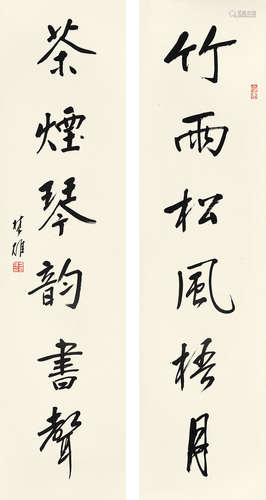 竹雨松風梧月
茶煙琴韵書聲